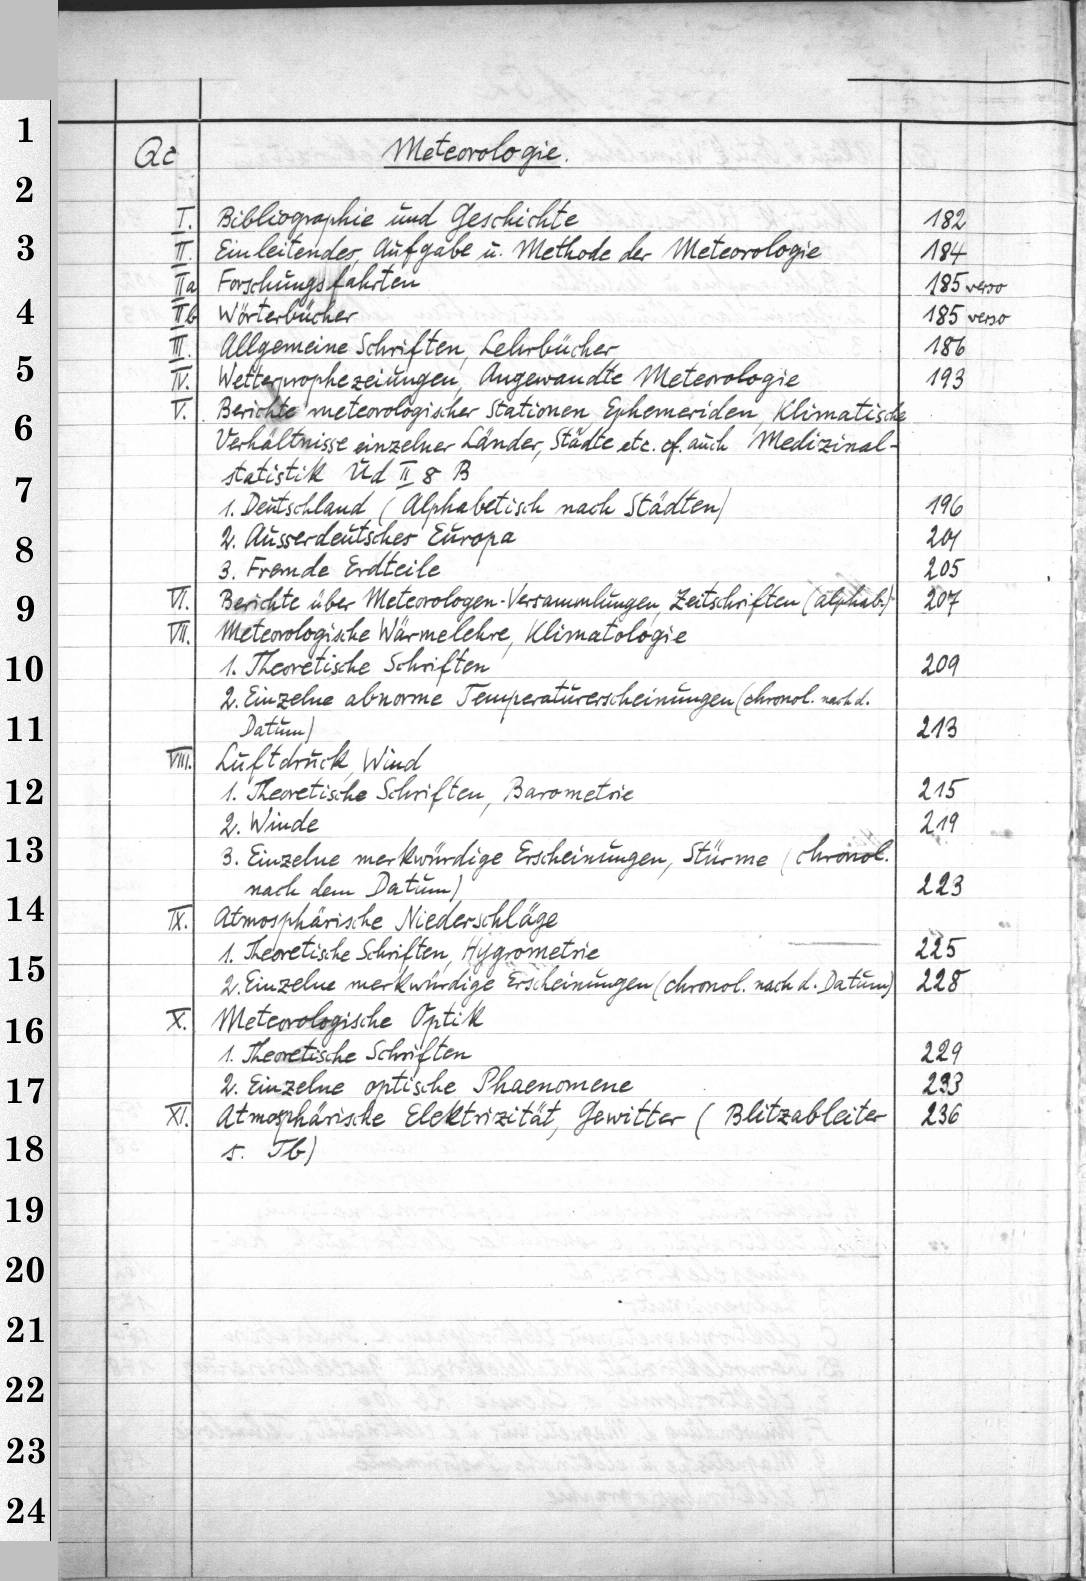 1
2
3
4
5
6
7
8
9
10
11
12
13
14
15
16
17
18
19
20
21
22
23
24
Qc Meteorologie.
I. Bibliographie und Geschichte 182
II. Einleitendes, Aufgabe u. Methode der Meteorologie 184
IIa Forschungsfahrten 185 verso
IIb Wörterbücher 185 verso
III. Allgemeine Schriften, Lehrbücher 186
IV. Wetterprophezeiungen, Angewandte Meteorologie 193
V. Berichte meteorologischer Stationen, Ephemeriden, Klimatische
Verhältnisse einzelner Länder, Städte etc. cf. auch Medizinal-
statistik Ud II 8 B
1. Deutschland (Alphabetisch nach Städten) 196
2. Ausserdeutsches Europa 201
3. Fremde Erdteile 205
VI. Berichte über Meteorologen-Versammlungen, Zeitschriften (alphab.) 207
VII. Meteorologische Wärmelehre, Klimatologie
1. Theoretische Schriften 209
2. Einzelne abnorme Temperaturerscheinungen (chronol. nach d.
Datum) 213
VIII. Luftdruck, Wind
1. Theoretische Schriften, Barometrie 215
2. Winde 219
3. Einzelne merkwürdige Erscheinungen, Stürme (chronol.
nach dem Datum) 223
IX. Atmosphärische Niederschläge
1. Theoretische Schriften, Hygrometrie 225
2. Einzelne merkwürdige Erscheinungen (chronol. nach d. Datum) 228
X. Meteorologische Optik
1. Theoretische Schriften 229
2. Einzelne optische Phaenomene 233
XI. Atmosphärische Elektrizität, Gewitter (Blitzableiter 236
s. Tb)